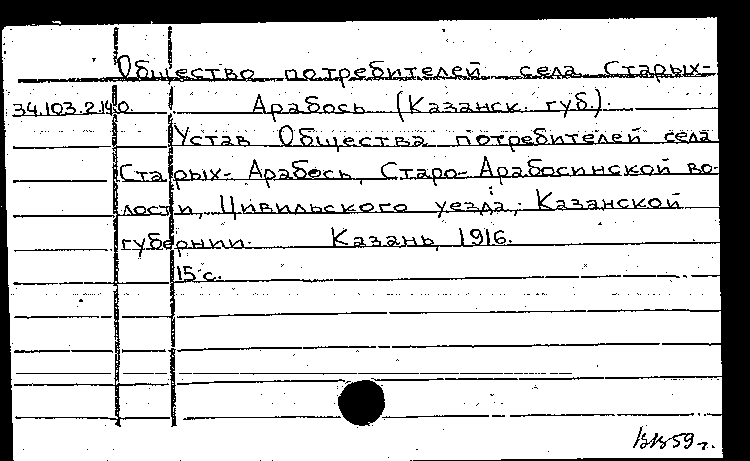 Общество потребителей села Старых-
34.103.2.140. Арабось (Казанск. губ.).
Устав Общества потребителей села
Старых- Арабось, Старо- Арабосинской во-
лости, Цивильского уезда, Казанской
губернии. Казань, 1916.
15 с.
59 г.